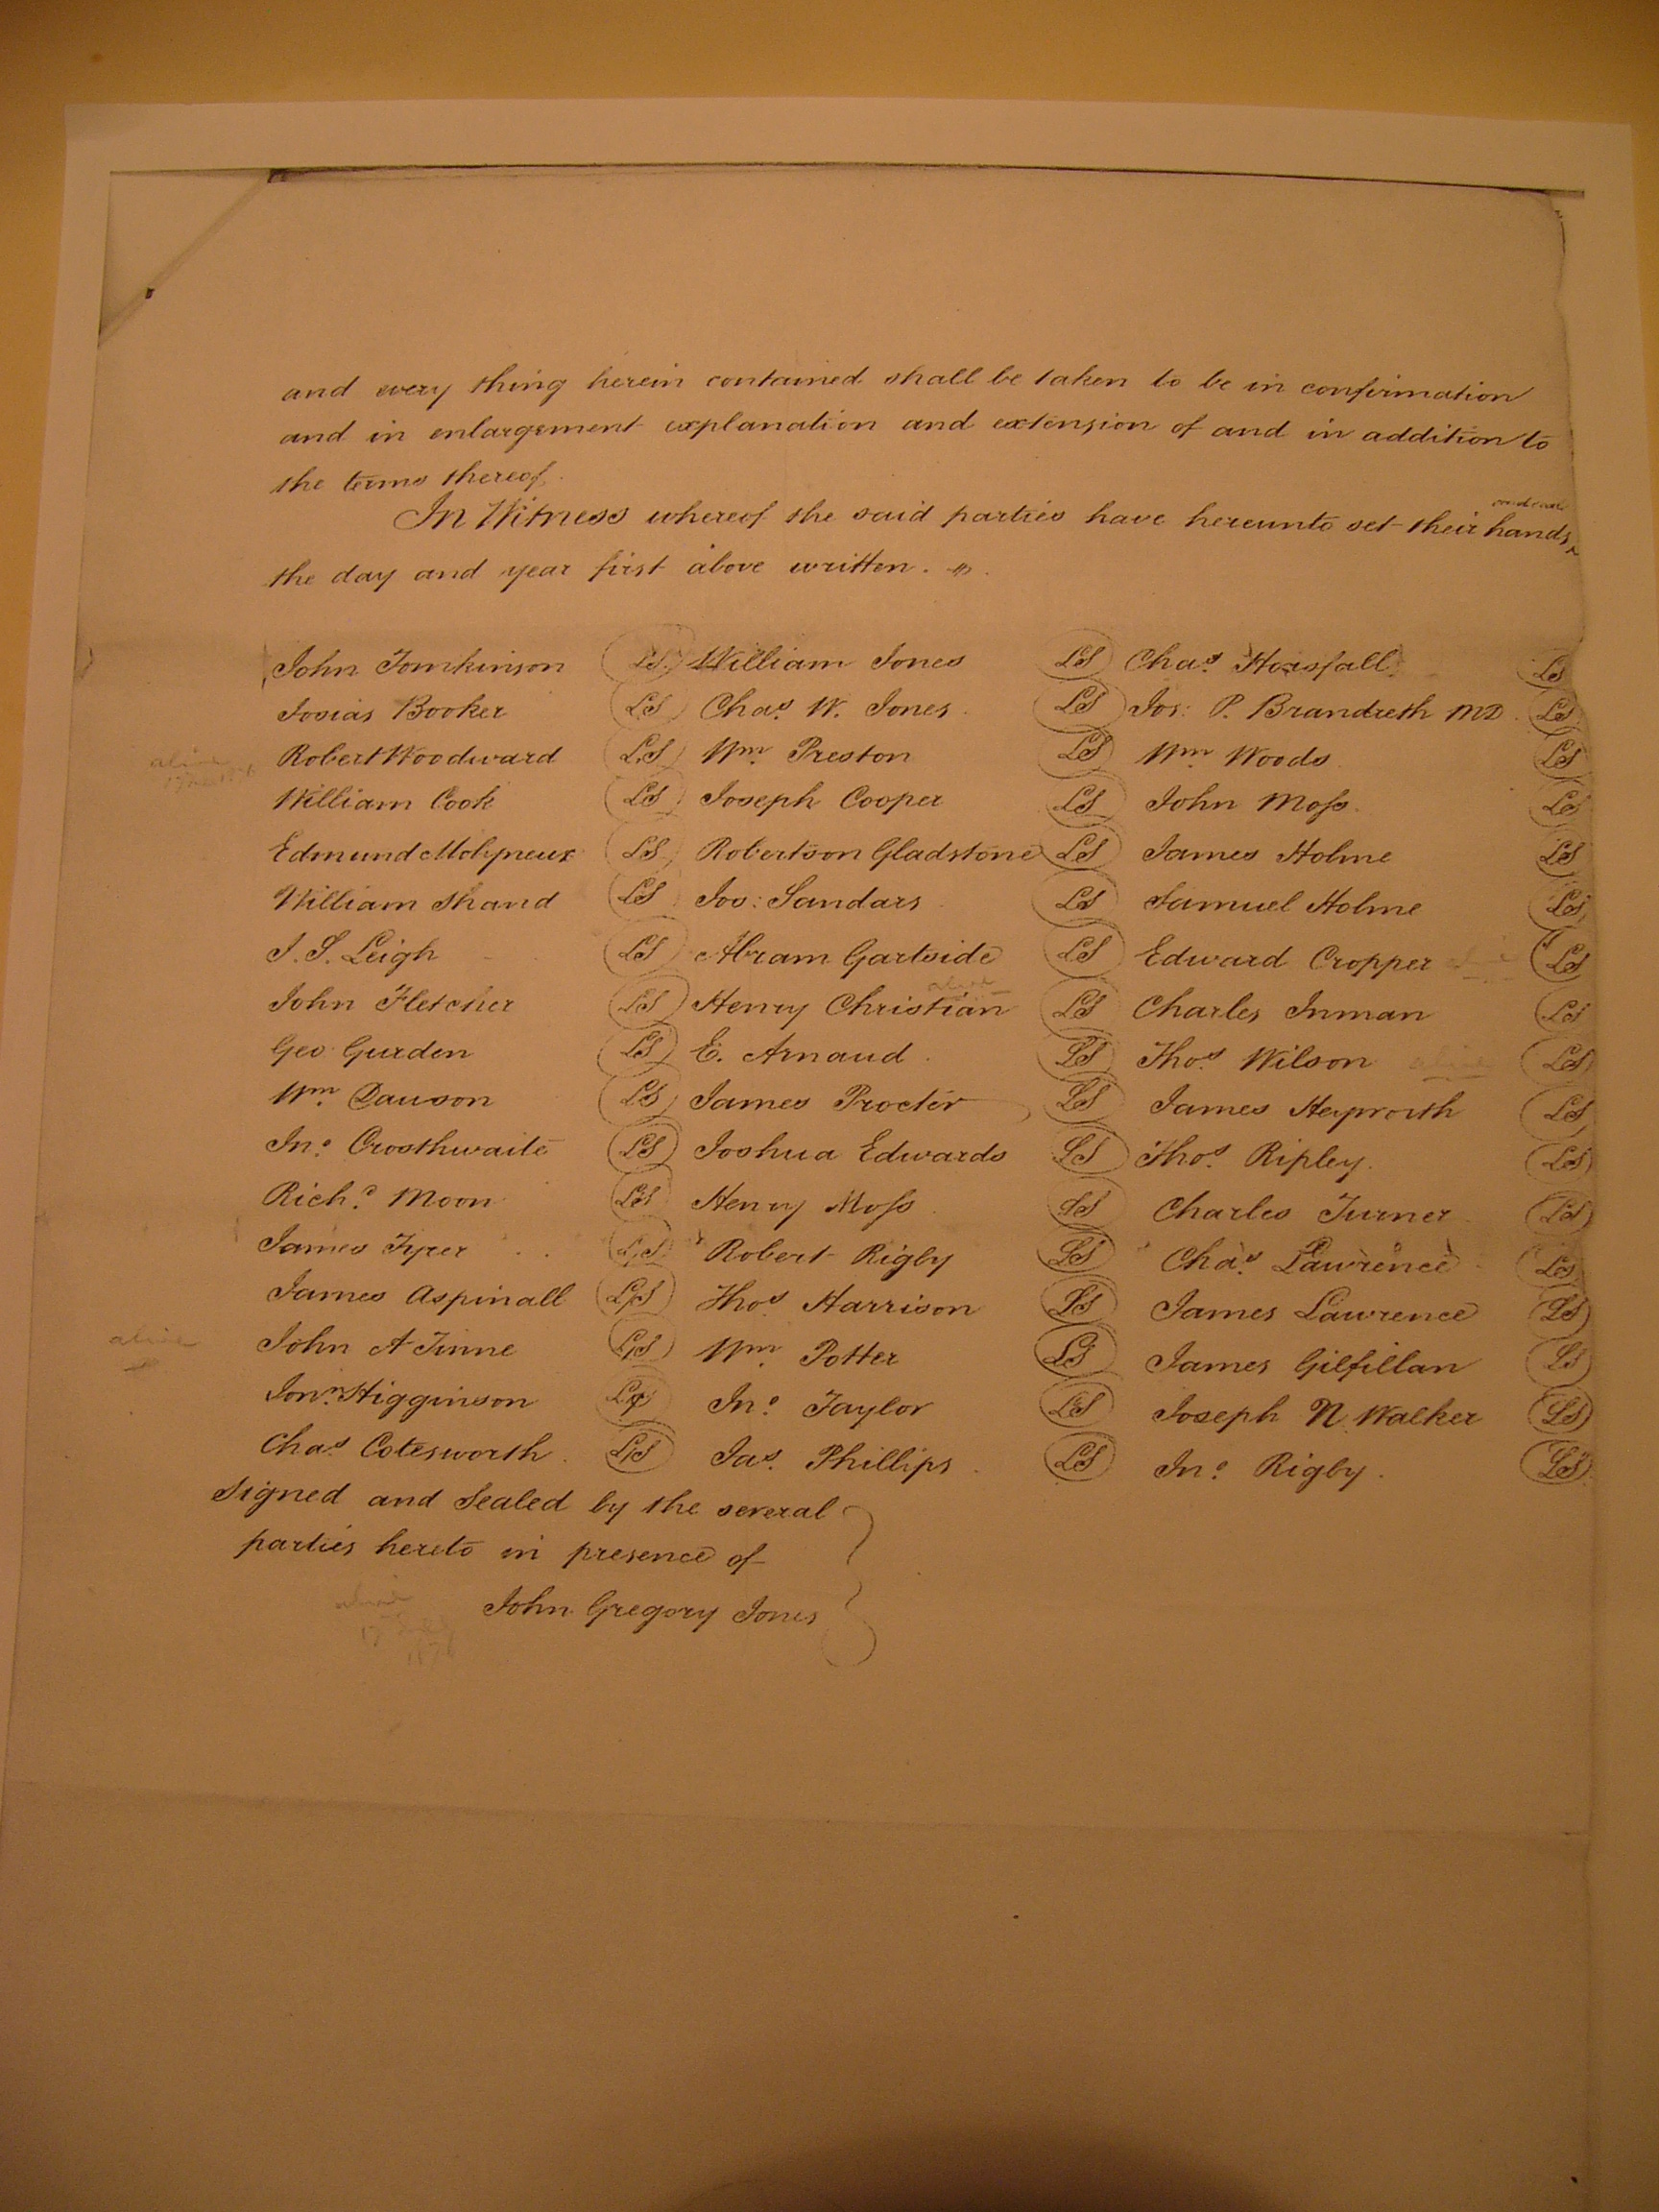 and every thing herein contained shall be taken to be in confirmation
and in enlargement explanation and extension of and in addition to
the terms thereof.
and seals
In Witness whereof the said parties have hereunto set their hands
the day and year first above written.
John Tomkinson LS William Jones LS Chas. Horsfall LS
Josias Booker LS Chas. W. Jones LS Jos: P. Brandreth MD LS
alive Robert Woodward LS Wm. Preston LS Wm. Woods LS
William Cook LS Joseph Cooper LS John Moss LS
Edmund Molyneux LS Robertson Gladstone LS James Holme LS
William Shand LS Jos: Sandars LS Samuel Holme LS
J. S. Leigh LS Abram Gartside LS Edward Cropper LS
alive
John Fletcher LS Henry Christian LS Charles Inman LS
Geo Gurden LS E. Arnaud LS Thos. Wilson alive LS
Wm. Dawson LS James Procter LS James Heyworth LS
Jno. Crosthwaite LS Joshua Edwards LS Thos. Ripley LS
Richd. Moon LS Henry Moss LS Charles Turner LS
James Tyrer LS Robert Rigby LS Chas. Lawrence LS
James Aspinall LS Thos Harrison LS James Lawrence LS
alive John A Tinne LS Wm. Potter LS James Gilfillan LS
Jonn. Higginson LS Jno. Taylor LS Joseph N. Walker LS
Chas Cotesworth LS Jas. Phillips LS Jno. Rigby LS
Signed and Sealed by the several
parties hereto in presence of
alive
John Gregory Jones
17
187